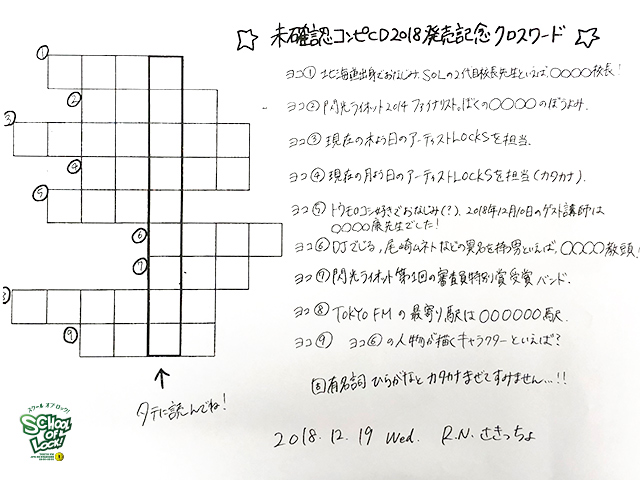 ☆ 未確認コンピCD2018発売記念クロスワード ☆
ヨコ① 北海道出身でおなじみ、SOLの2代目校長先生といえば、○○○○校長！
ヨコ② 閃光ライオット2014ファイナリスト。ぼくの○○○○のぼうよみ.
ヨコ③ 現在の木よう日のアーティストLOCKSを担当.
ヨコ④ 現在の月よう日のアーティストLOCKSを担当(カタカナ).
ヨコ⑤ トウモロコシ好きでおなじみ(?)、2018年12月10日のゲスト講師は
○○○○康先生でした！
ヨコ⑥ DJでじる、尾崎ムネトなどの異名を持つ男といえば、○○○○教頭！
ヨコ⑦ 閃光ライオット第1回の審査員特別賞受賞バンド.
ヨコ⑧ TOKYO FMの最寄り駅は○○○○○○駅.
ヨコ⑨ ヨコ⑥の人物が描くキャラクターといえば？
固有名詞ひらがなとカタカナまぜてすみません…!!
2018.12.19 Wed. R.N. さきっちょ
①
②
③
④
⑤
⑥
⑦
⑧
⑨
↑
タテに読んでね！
スクールオブロック!
SCHOOL
OF
LOCK!